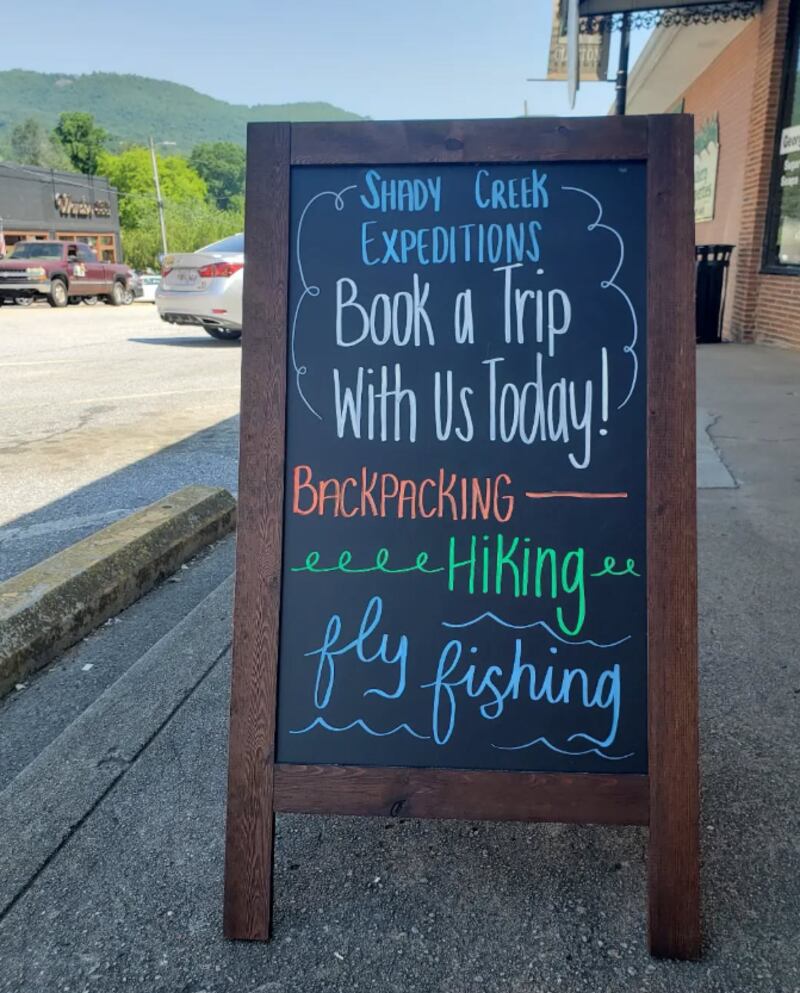 SHADY CREEK
EXPEDITIONS
Book a Trip
With Us Today!
BACKPACKING
Hiking
fly fishing